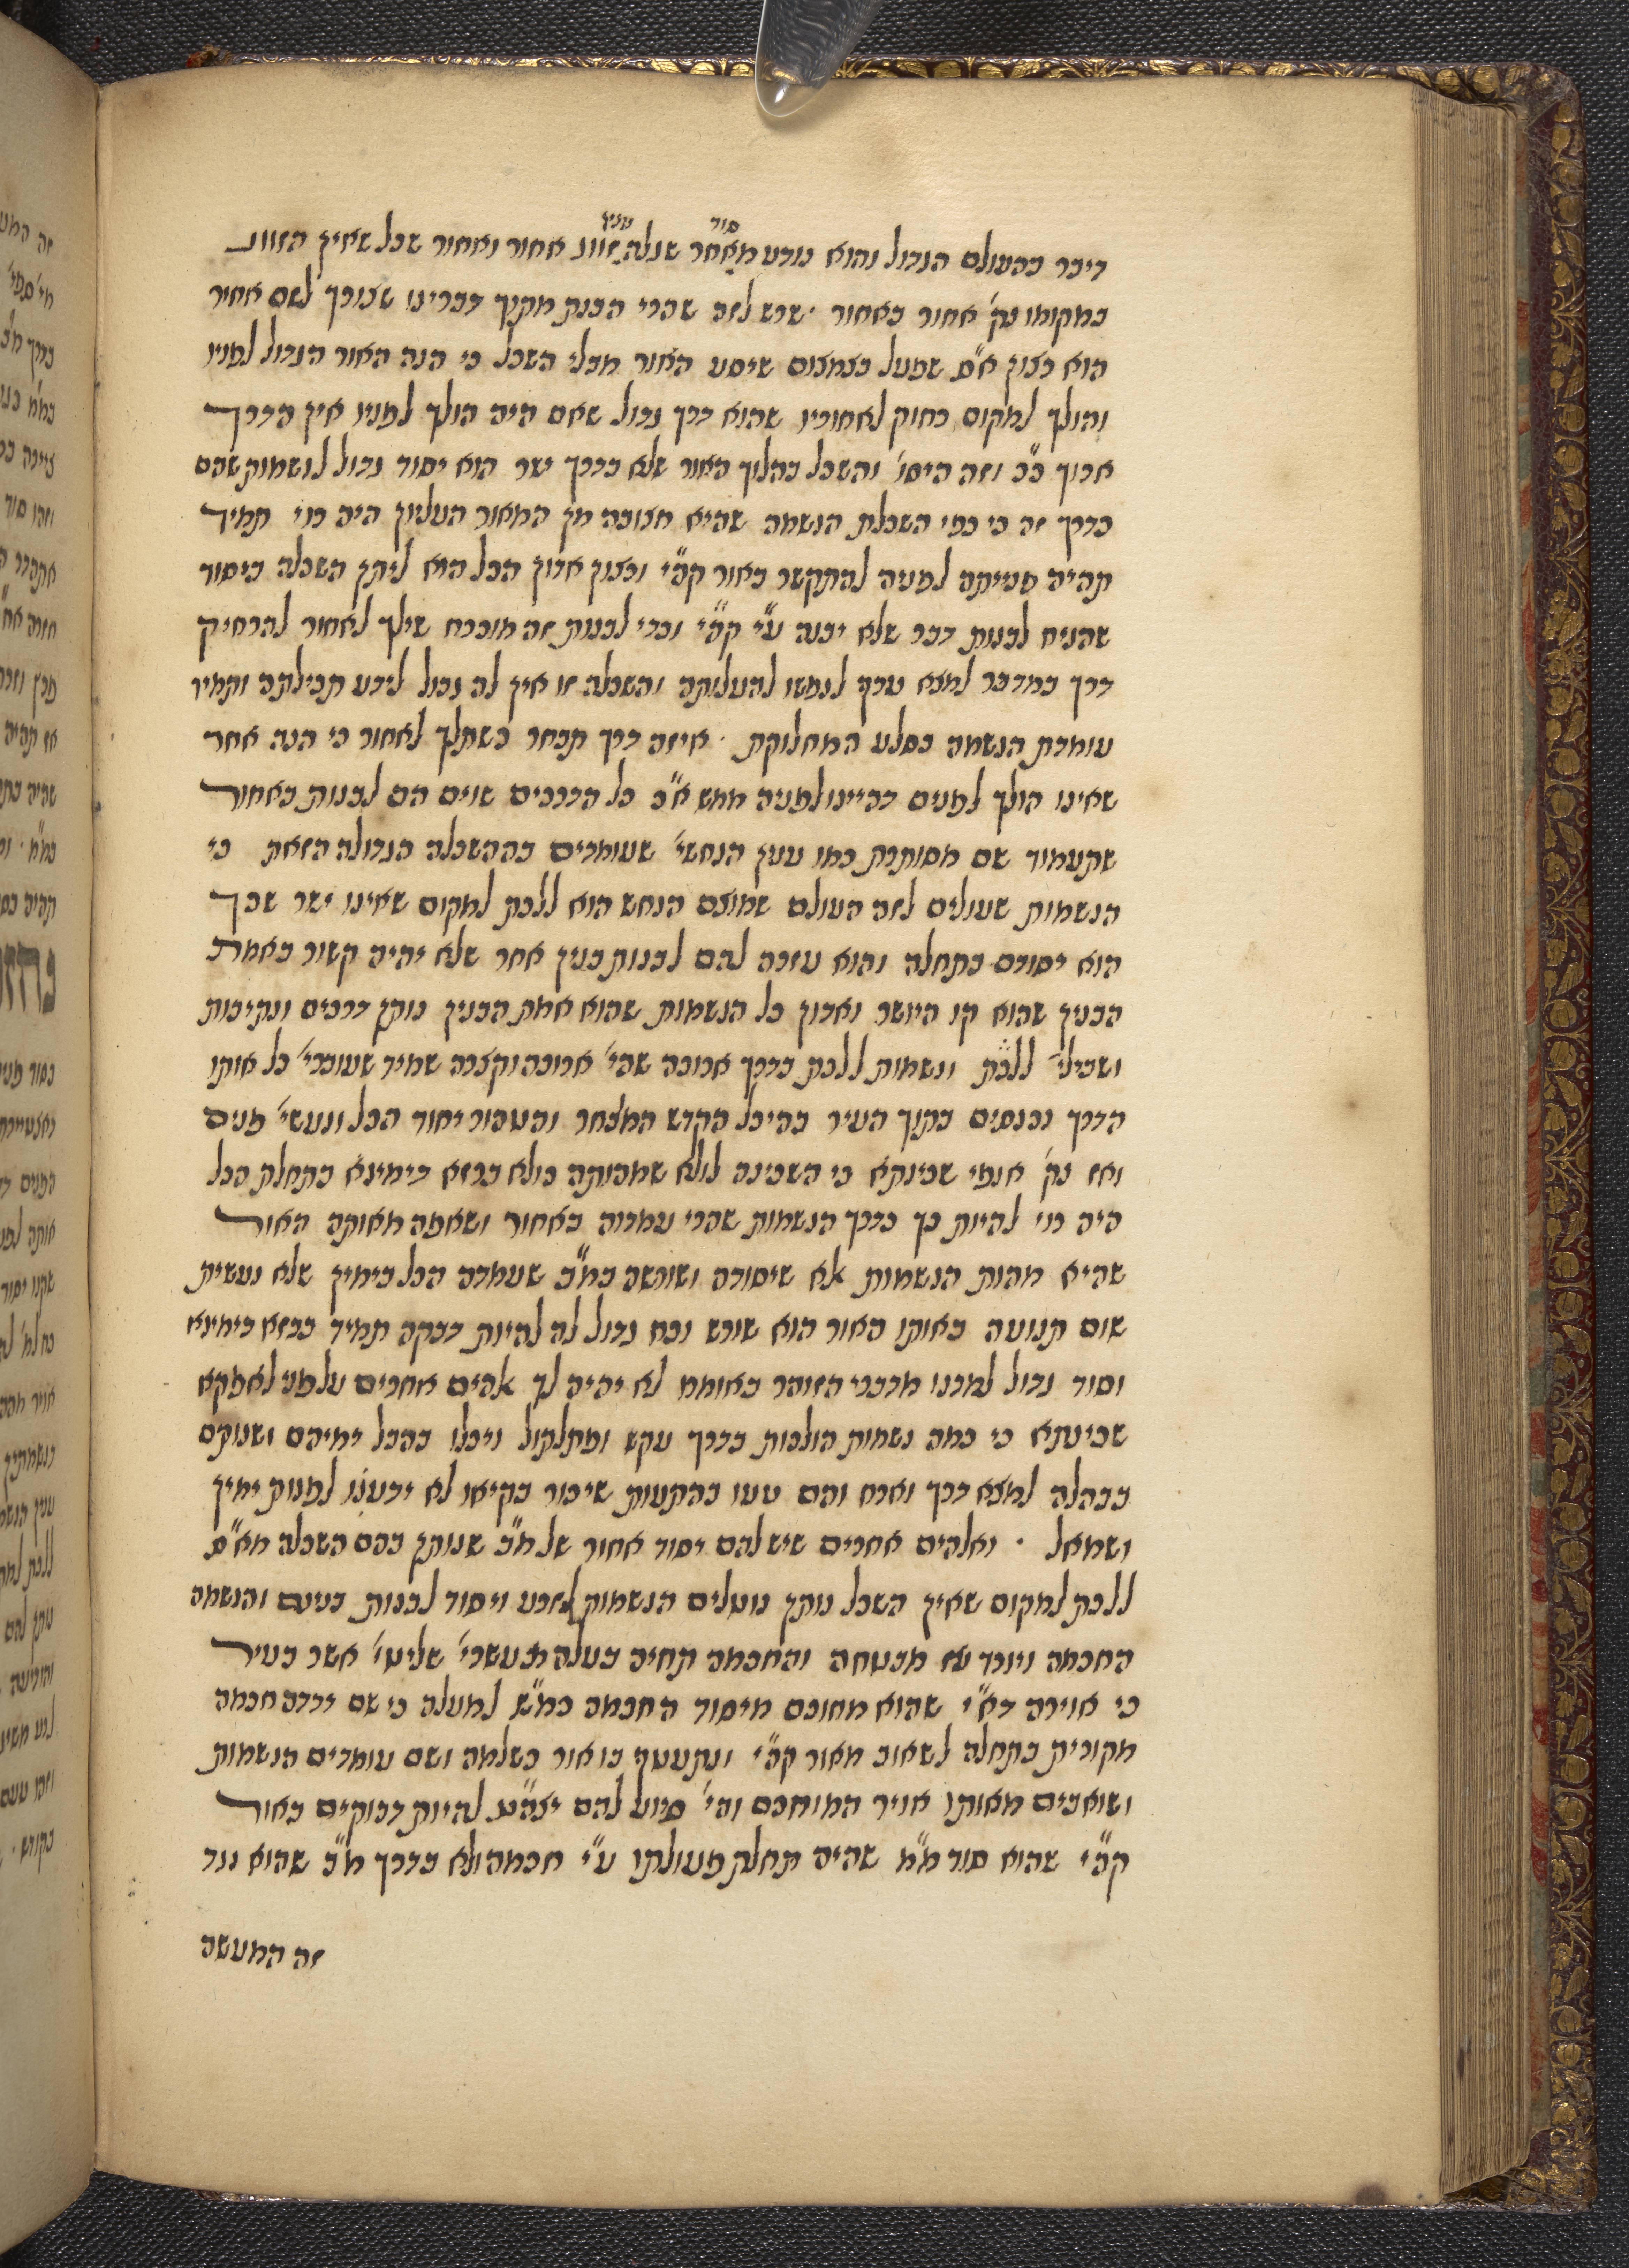 דיבר בהעולם הגדול והוא נודע מאחר סוד שגלה ענין זווג אחור ואחור שכל שאין הזווג
במקומו נק' אחור באחור . שרש לזה שהרי הבנת מתוך דברינו שצורך לשם אחור
הוא רצון א"ס שפעל בצמצום שיסע האור מבלי השכל כי הנה האור הגדול לפניו
והולך למקום רחוק לאחוריו שהוא דרך גדול שאם היה הולך לפניו אין הדרך
ארוך כ"כ וזה היסו' והשכל בהלוך האור שלא בדרך ישר הוא יסוד גדול לנשמות שהם
בדרך זה כי כפי השכלת הנשמה שהיא חצובה מן המאור העליון היה כדי תמיד
תהיה פנייתה למעלה להתקשר באור קה"י ורצון אדון הכל הוא ליתן השכלה ביסוד
שהניח לבנות דבר שלא יבנה ע"י קה"י וכדי לבנות זה מוכרח שילך לאחור להרחיק
דרך במדבר למצא טרף לנפשו להעלותה והשכלה זו אין לה גבול לידע תכילתה ותמיד
עומדת הנשמה בסלע המחלוקת . איזה דרך תבחר כשתלך לאחור כי הנה אחר
שאינו הולך לפנים דהיינו למעלה ממש א"כ כל הדרכים שוים הם לבנות באחור
שתעמוד שם מסותרת כמו ענין הנחשי' שעומדים בההשכלה הגדולה הזאת כי
הנשמות שעולים לזה העולם שמוצם הנחש הוא ללכת למקום שאינו ישר שכך
הוא יסודם בתחלה והוא עזרה להם לבנות בנין אחר שלא יהיה קשור באמת
הבנין שהוא קו היושר ואדון כל הנשמות שהוא אמת הבנין נותן דרכים ונתיבות
ושבילי' ללכת ונשמות ללכת בדרך ארוכה שהי' ארוכה וקצרה שמיד שעוברי' כל אותו
הדרך נכנסים בתוך העיר בהיכל הקדש המצחר והטהור יחוד הכל ונעשי' פנים
ואז נק' אנפי שכינתא כי השכינה לולא שמהותה כולא ברזא דימינא בתחלת הכל
היה כדי להיות כך בדרך הנשמות שהרי עמדה באחור ושאפה מאותה האור
שהיא מהות הנשמות אלא שיסודה ושורשה במ"ב שעמדה הכל בימין שלא נעשית
שום תנועה באותו האור הוא שורש וכח גדול לה להיות דבקה תמיד ברזא דימינא
וסוד גדול למדנו מדברי הזוהר באומם לא יהיה לך אלהים אחרים על פני לאפקא
שכינתא כי כמה נשמות הולכות בדרך עקש ופתלתול ויכלו בהבל ימיהם ושנותם
בבהלה למצא דרך ואבדו והם טעו כהתעות שיכור בקיאו לא ידענו לפנות ימין
ושמאל . ואלהים אחרים שיש להם יסוד אחור של מ"ב שנותן בהם השכלה מא"ס
ללכת למקום שאין השכל נותן נוטלים הנשמות לזרע ויסוד לבנות בנינם והנשמה
החכמה ויורד עז מבטחה והחכמה תחיה בעלה מעשרי' שליטי' אשר בעיר
כי אוירה דא"י שהוא מחוכם מיסוד החכמה כמ"ש למעלה כי שם ירדה חכמה
מקורית בתחלה לשאוב מאור קה"י ונתעטף בו אור כשלמה ושם עומדים הנשמות
ושואבים מאותו אויר המוחכם והי' סיוע להם יצה"ט להיות דבוקים באור
קה"י שהוא סוד מ"מ שהיה תחלת פעולתו ע"י חכמה ולא בדרך מ"ב שהוא נגד
זה המעשה